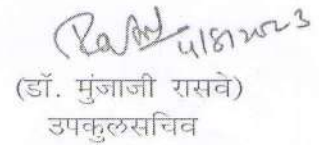 4/8/2023
(डॉ. मुंजाजी रासवे)
उपकुलसचिव